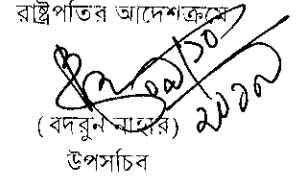 রাষ্ট্রপতির আদেশক্রমে
(বদরুন নাহার)
উপসচিব